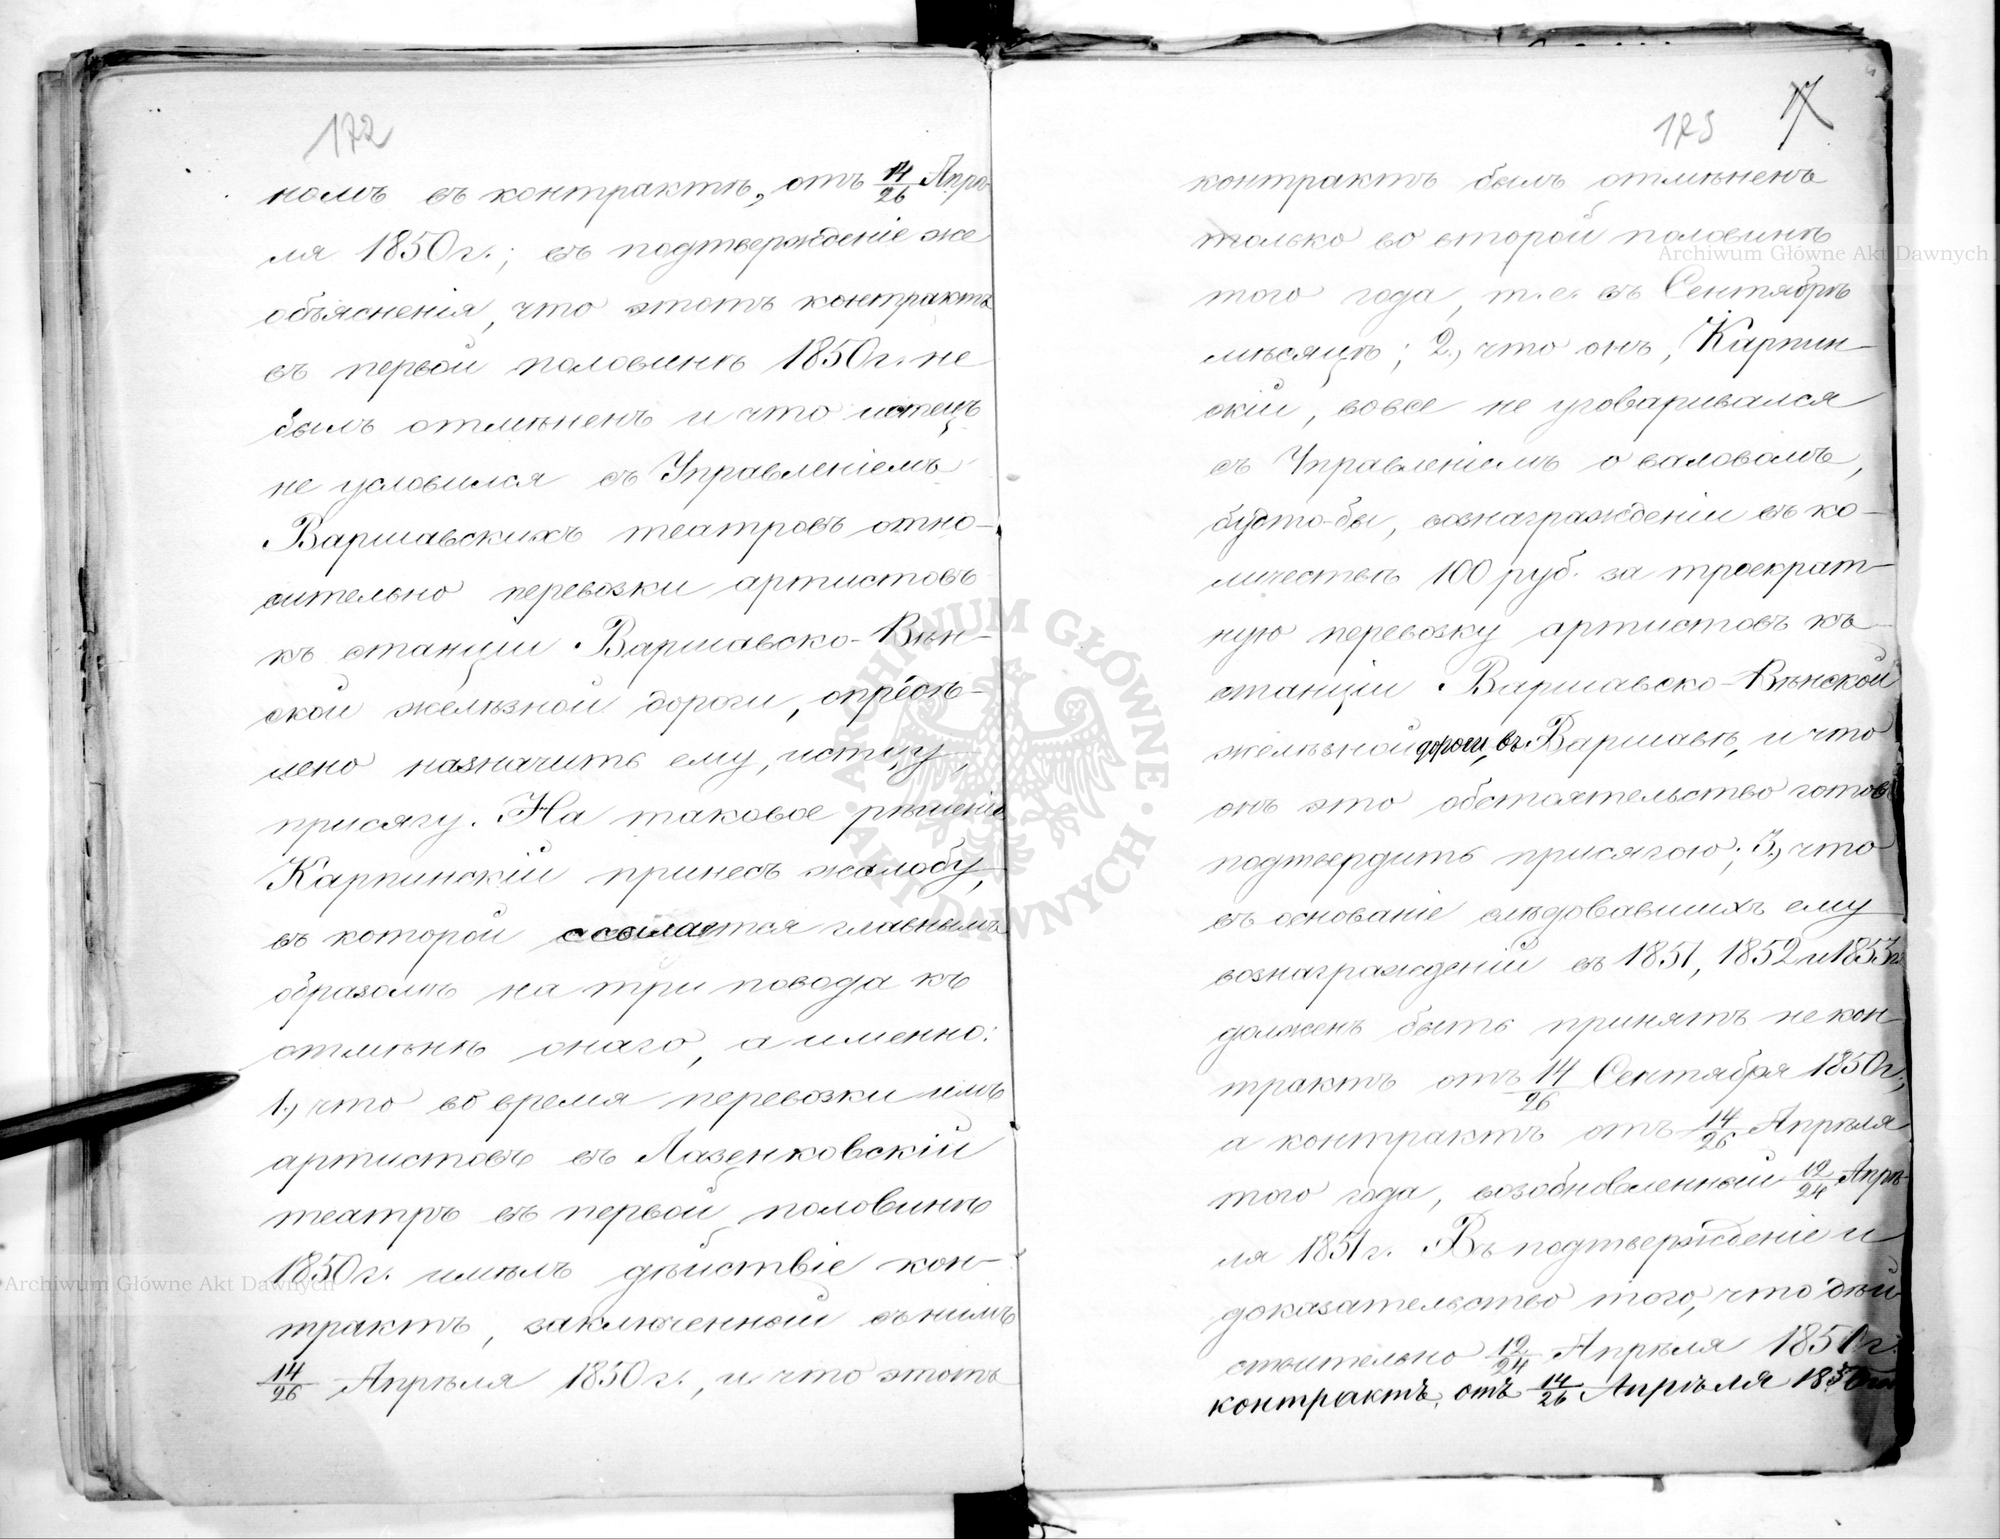 172
номъ въ контрактѣ, отъ 14/26 Апрѣ
ля 1850 г.; въ подтвержденіе же
объясненія, что этотъ контрактъ
въ первой половинѣ 1850 г. не
былъ отмѣненъ и что истецъ
не условился съ Управленіемъ
Варшавскихъ театровъ отно-
сительно перевозки артистовъ
къ станціи Варшавско-Вѣн-
ской желѣзной дороги, опредѣ-
лено назначить ему, истцу,
присягу. На таковое рѣшеніе
Карпинскій принесъ жалобу,
въ которой ссылается главнымъ
образомъ на три повода къ
отмѣнѣ онаго, а именно:
1., что во время перевозки имъ
артистовъ въ Лазенковскій
театръ въ первой половинѣ
1850 г. имѣлъ дѣйствіе кон-
трактъ, заключенный съ нимъ
14/26 Апрѣля 1850 г., и что этотъ
173
17
контрактъ былъ отмѣненъ
только во второй половинѣ
того года, т. е. въ Сентябрѣ
мѣсяцѣ; 2., что онъ, Карпин-
скій, вовсе не уговаривался
съ Управленіемъ о валовомъ,
будто-бы, вознагражденіи въ ко-
личествѣ 100 руб. за троекрат-
ную перевозку артистовъ къ
станціи Варшавско-Вѣнской
желѣзной дороги, въ Варшавѣ, и что
онъ это обстоятельство готовъ
подтвердить присягою; 3., что
въ основаніе слѣдовавшихъ ему
вознагражденій въ 1851, 1852 и 1853 г.
долженъ быть принятъ не кон
трактъ отъ 14/26 Сентября 1850 г.,
а контрактъ отъ 14/26 Апрѣля
того года, возобновленный 12/24 Апрѣ
ля 1851 г. Въ подтвержденіе и
доказательство того, что дѣй
ствительно 12/24 Апрѣля 1851 г.
контрактъ, отъ 14/26 Апрѣля 1850
Archiwum Główne Akt Dawnych
Archiwum Główne Akt Dawnych
ARCHIWUM GŁÓWNE AKT DAWNYCH